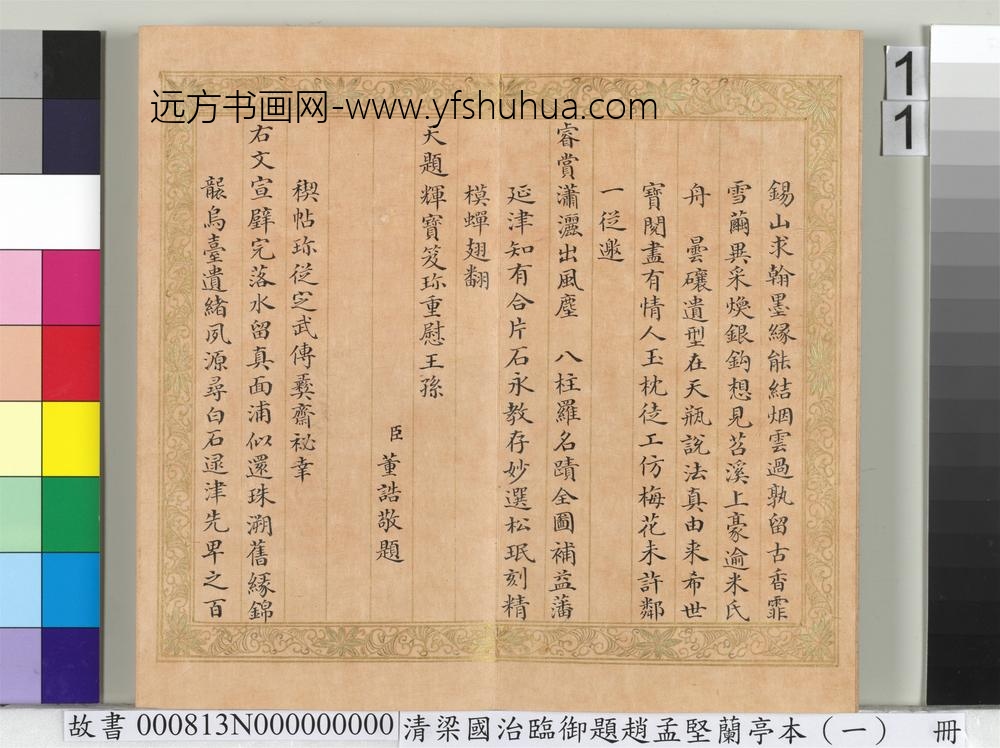 远方书画网-www.yfshuhua.com
1
1
錫山求翰墨緣能結烟雲過孰留古香霏
雪繭異采煥銀鈎想見苕溪上豪逾米氏
舟　曇礲遺型在天瓶說法真由来希世
寶閱盡有情人玉枕徒工仿梅花未許鄰
一従邀
睿賞瀟灑出風塵　八柱羅名蹟全圖補益藩
延津知有合片石永教存妙選松珉刻精
模蟬翅翻
天題輝寶笈珍重慰王孫
臣董誥敬題
禊帖珍従定武傳彝齋祕幸
右文宣璧完落水留真面浦似還珠溯舊緣錦
裝烏臺遺緒夙源尋白石遝津先畀之百
故書 000813N000000000 清梁國治臨御題趙孟堅蘭亭本（一） 冊